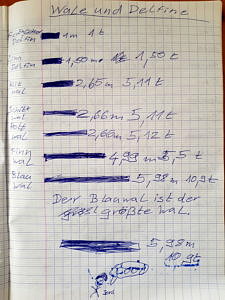 Wale und Delfine
Delfin 1m 1t
Delfin 1,50m 1,50t
wal 2,65m 5,11t
wal 2,66m 5,11t
wal 2,66m 5,12t
Finn wal 4,93m 5,5t
Blau wal 5,98m 10,9t
Derr Blauwal ist der
größte wal.
5,98m
10,9t